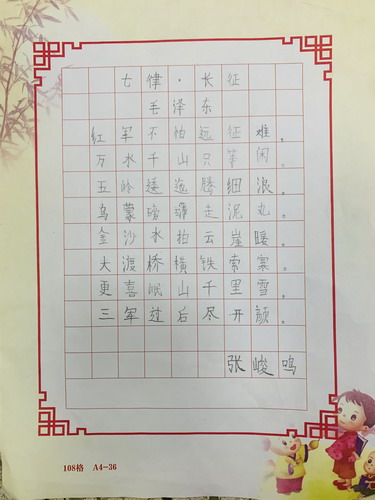 七律·长征
毛泽东
红军不怕远征难。
万水千山只等闲。
五岭逶迤腾细浪。
乌蒙磅礴走泥丸。
金沙水拍云崖暖。
大渡桥横铁索寒。
更喜岷山千里雪。
三军过后尽开颜。
张峻鸣
108格 A4-36